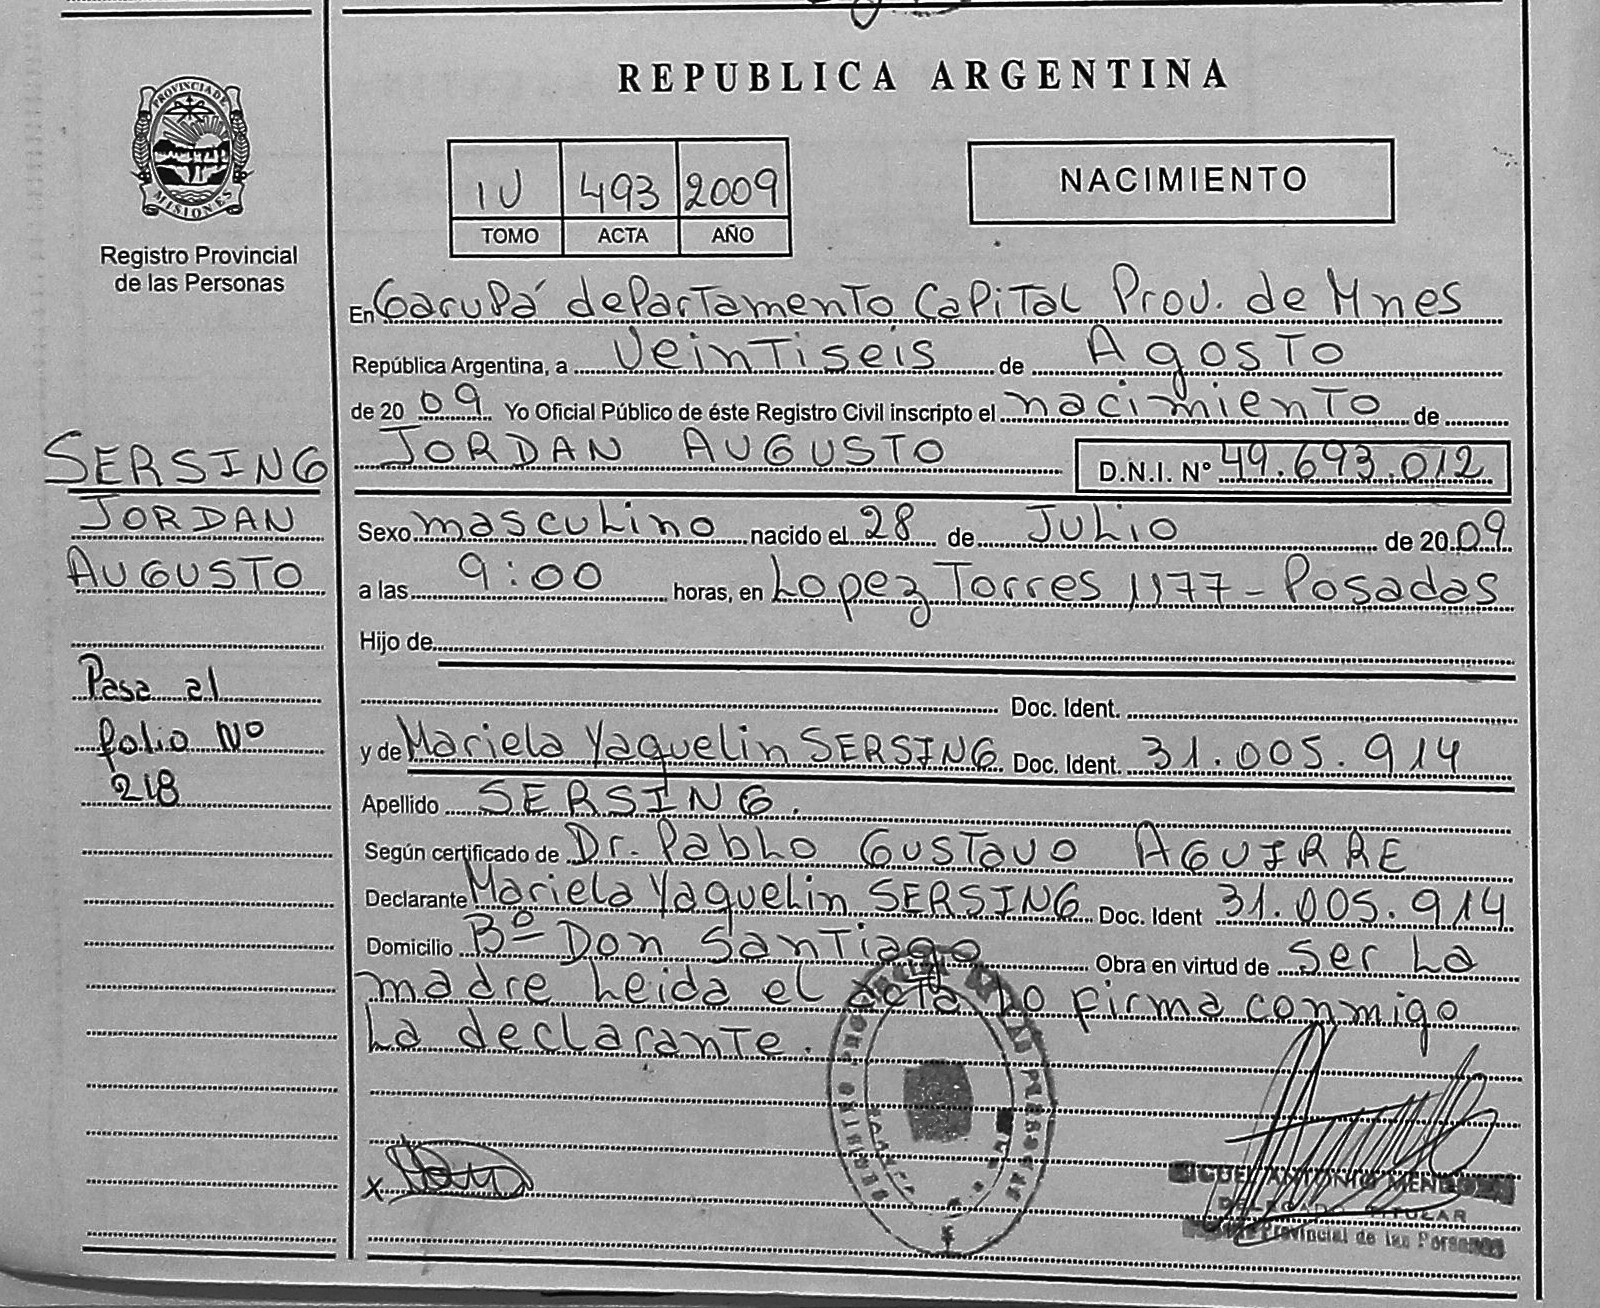 PROVINCIA DE
MISIONES
Registro Provincial
de las Personas
SERSING
JORDAN
AUGUSTO
Pasa al
folio Nº
218
REPUBLICA ARGENTINA
IV 493 2009
TOMO ACTA AÑO
NACIMIENTO
En Garupá departamento Capital Prov. de Mnes
República Argentina, a Veintiseis de Agosto
de 2009 Yo Oficial Público de éste Registro Civil inscripto el nacimiento de
JORDAN AUGUSTO D.N.I. Nº 49.693.012
Sexo masculino nacido el 28 de Julio de 2009
a las 9:00 horas, en Lopez Torres 1177 - Posadas
Hijo de
Doc. Ident.
y de Mariela Yaquelin SERSING Doc. Ident. 31.005.914
Apellido SERSING.
Según certificado de Dr. Pablo GUSTAVO AGUIRRE
Declarante Mariela Yaquelin SERSING Doc. Ident 31.005.914
Domicilio Bº Don Santiago Obra en virtud de ser la
madre Leida el acta lo firma conmigo
La declarante.
ANTONIO
DELEGADO TITULAR
Provincial de las Personas